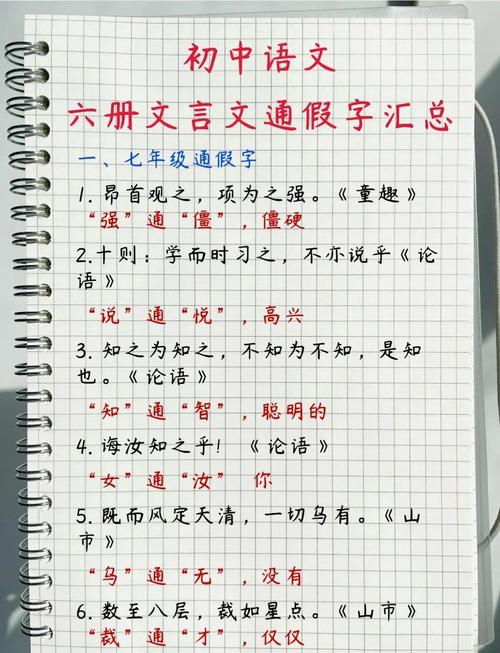 初中语文
六册文言文通假字汇总
一、七年级通假字
1. 昂首观之，项为之强。《童趣》
“强”通“僵”，僵硬
2.十则：学而时习之，不亦说乎《论
语》
“说”通“悦”，高兴
3. 知之为知之，不知为不知，是知
也。《论语》
“知”通“智”，聪明的
4. 诲汝知之乎！《论语》
“女”通“汝” 你
5. 既而风定天清，一切乌有。《山
市》
“乌”通“无”，没有
6. 数至八层，裁如星点。《山市》
“裁”通“才”，仅仅